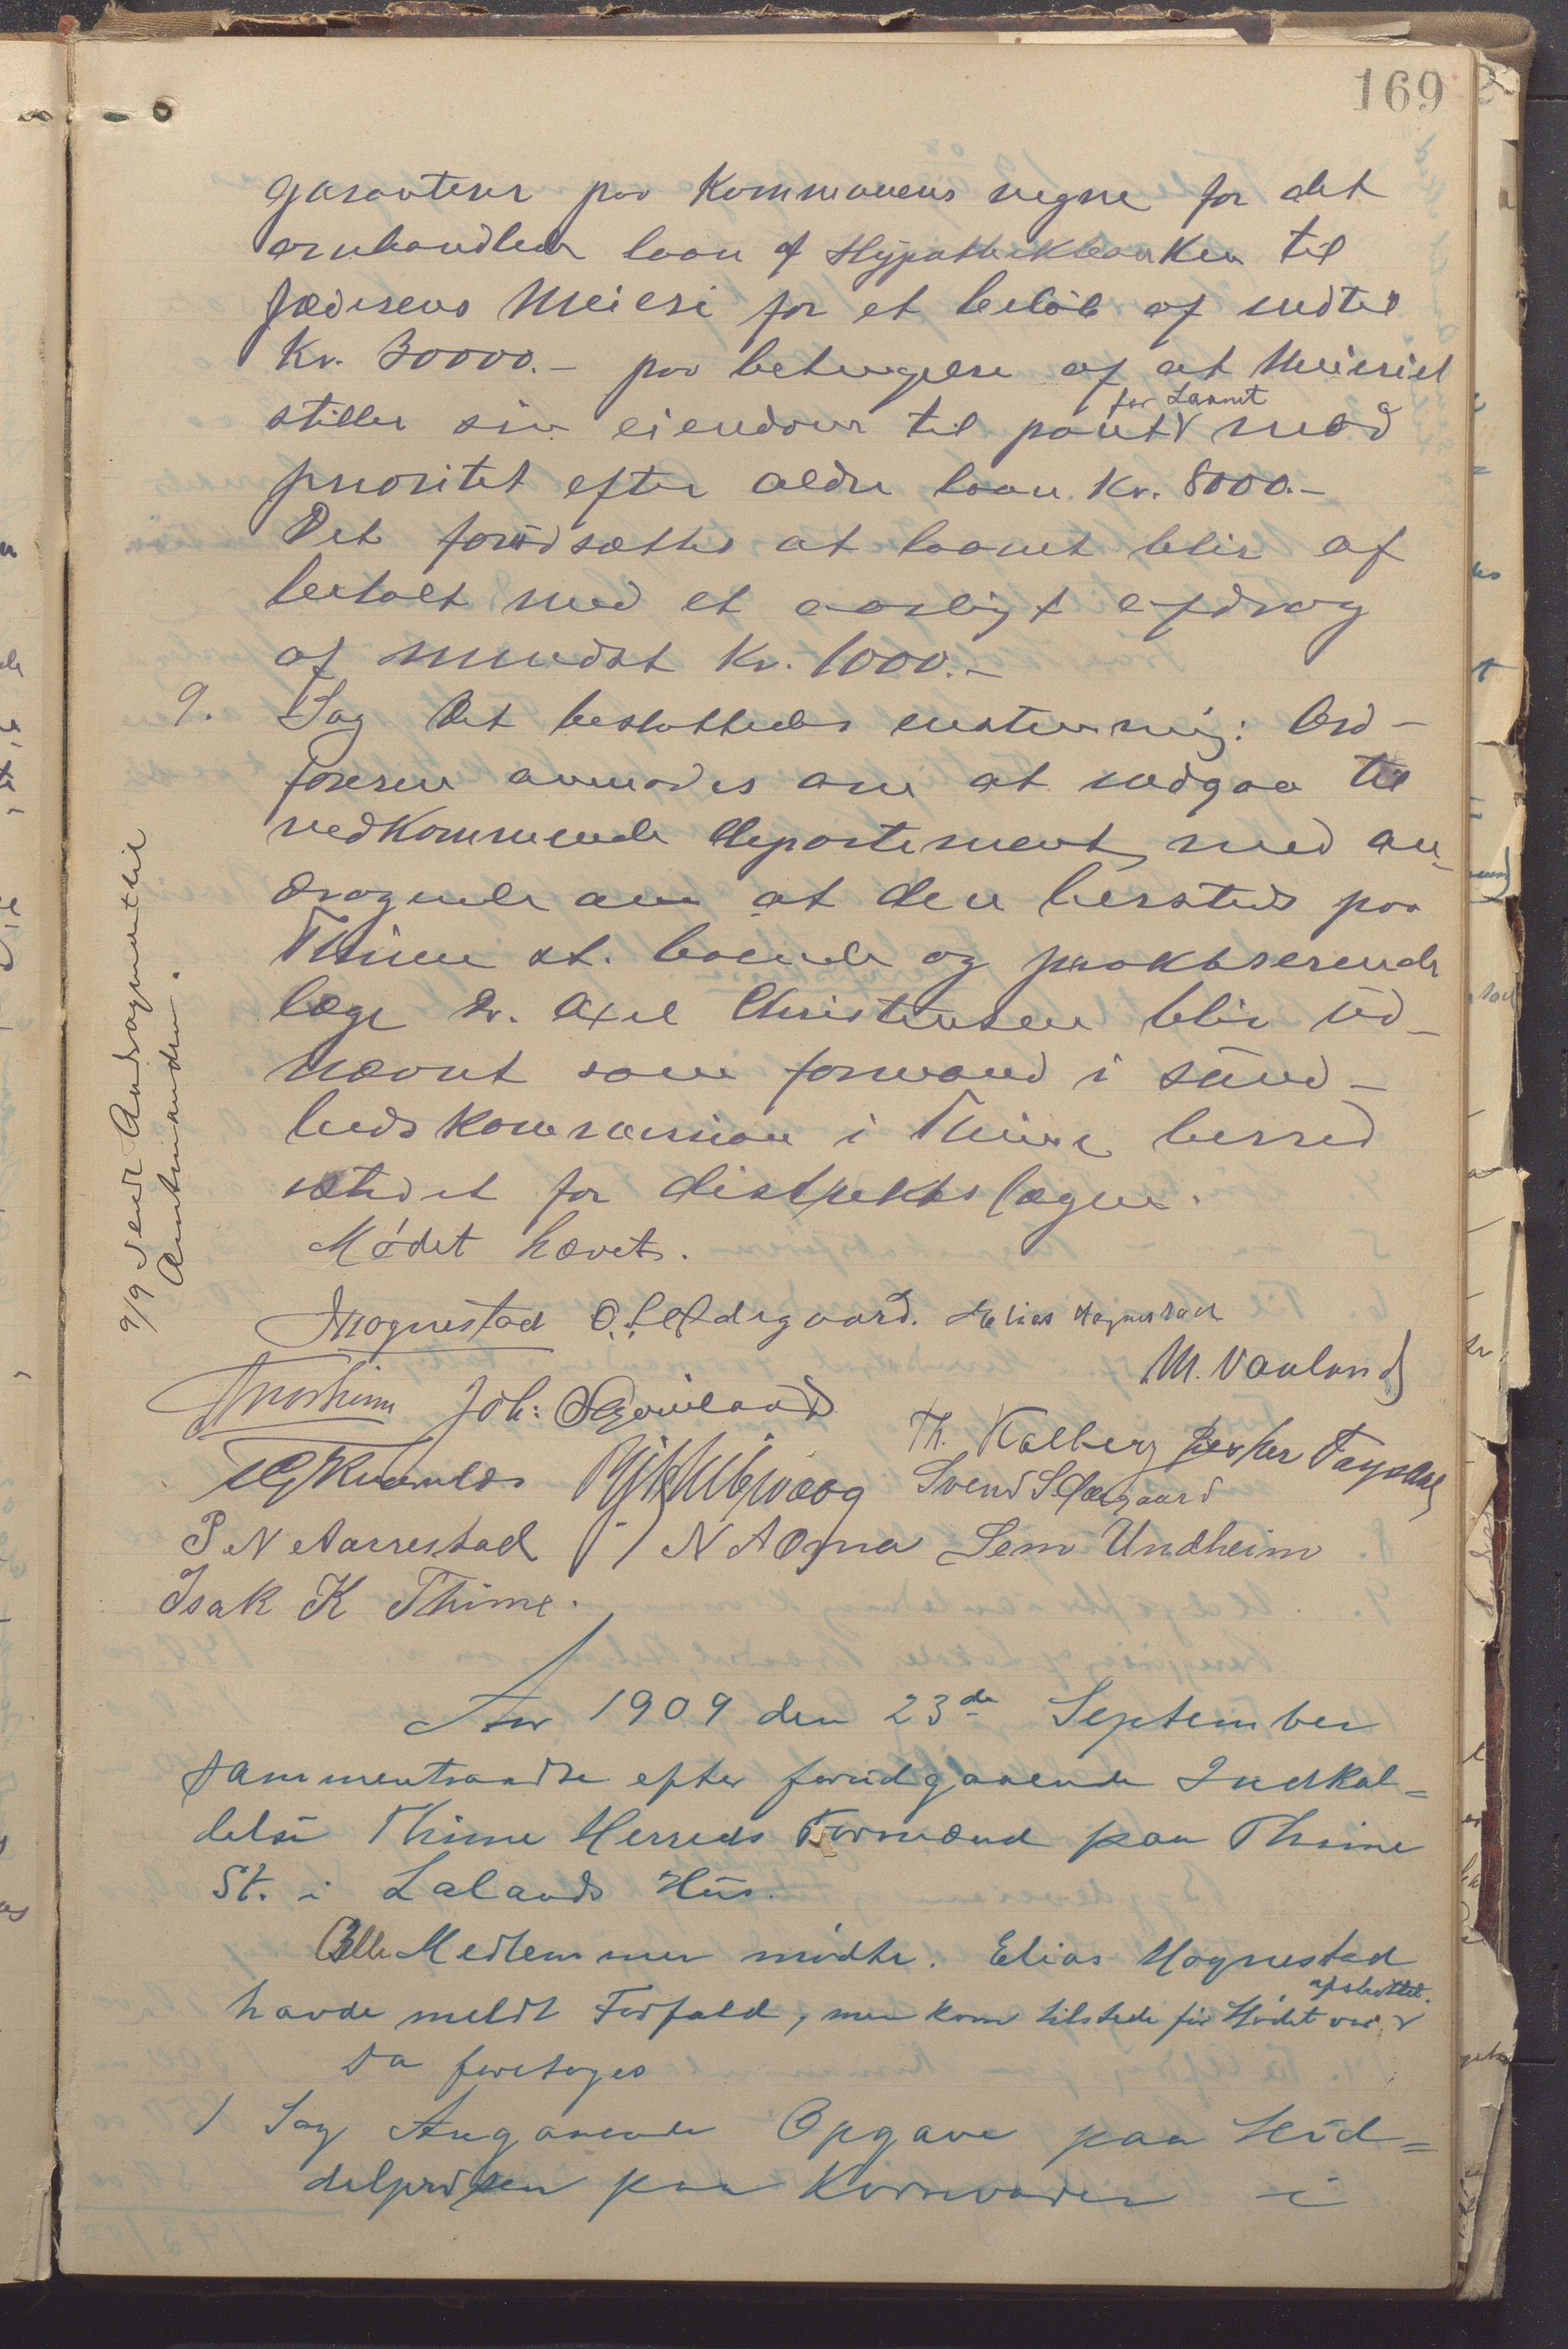 169
garanterer paa Kommunens vegne for det
omhandlede laan af Hypothekbanken til
Jæderens Meieri for et beløb af indtil
Kr. 30000.- paa betingelse af at Meieriet
stiller sin eiendom til pant for Laanet med
prioritet efter ældre laan Kr. 8000.-
Det forudsættes at laanet blir af
betalt med et aarligt afdrag
af mindst Kr. 1000.-
9. Sag Det besluttedes enstemmig: Ord-
føreren anmodes om at indgaa til
vedkommende departement med an-
dragende om at den hersteds paa
Thime st. boende og praktiserende
læge Dr. Axel Christensen blir ud-
nævnt som formand i sund-
hedskommission i Thime herred
istedet for distriktslægen.
Mødet hævet.
9/9 Sendt Andragendet til
Amtmanden.
Hognestad O. S. Ødegaard. Elias Hognestad
M. Vaaland
Joh:
Th. Kalberg
Svend S
P N Aarrestad N A Omna Sem Undheim
Isak K Thime.
Aar 1909 den 23de September
sammentraadte efter forudgaaende Indkal=
delse Thime Herreds Formænd paa Thime
St. i Lalands Hus.
Alle Medlemmer mødte. Elias Hognestad
havde meldt Forfald, men kom tilstede før Mødet var afsluttet.
Da foretoges
1 Sag Angaaende Opgave paa Mid=
delprisen paa Kornvarer i